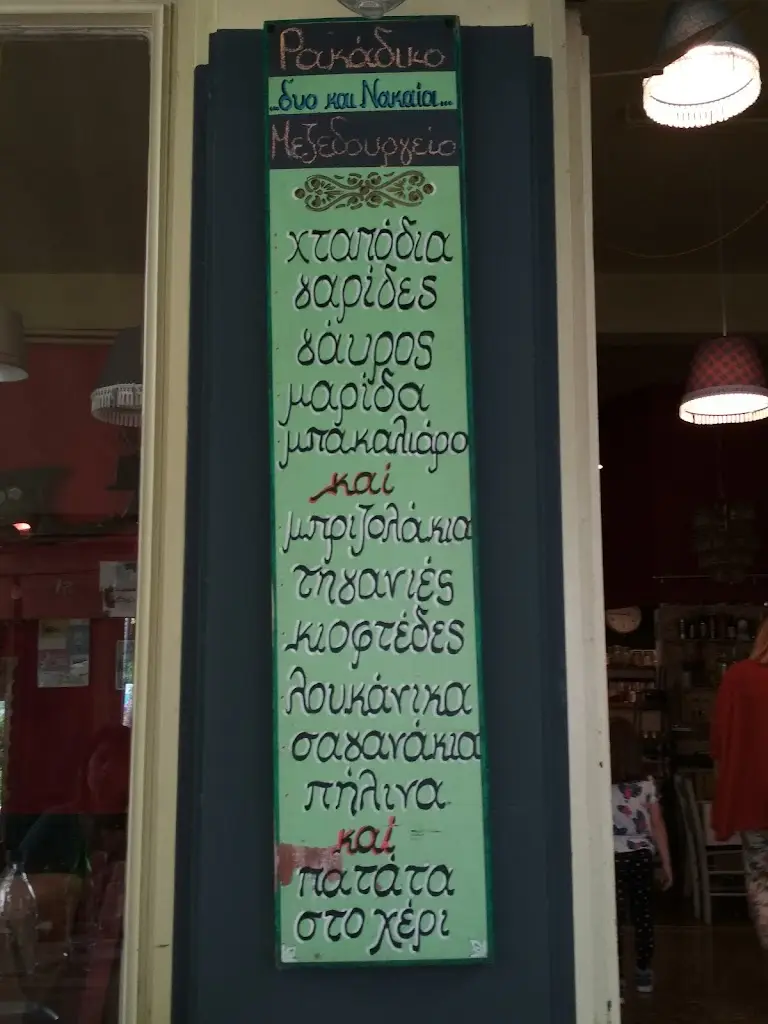 Ρακάδικο
...δυο και Νακαία...
Μεζεδουργείο
χταπόδια
γαρίδες
γάυρος
μαρίδα
μπακαλιάρο
καί
μπριζολάκια
τηγανιές
κιοφτέδες
λουκάνικα
σαγανάκια
πήλινα
καί
πατάτα
στο χέρι